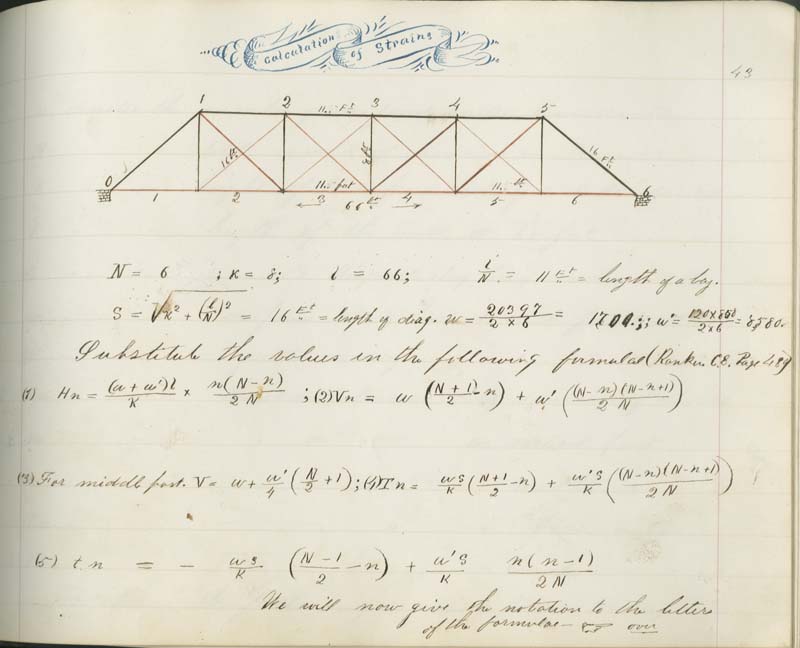 Calculation of Strains
43
1 2 11 Ft 3 4 5
16 ft 8 ft 16 Ft
0 11 feet 11 ft 6
1 2 3 66 ft 4 5 6
N = 6 ; K = 8; l = 66; l/N = 11 Ft = length of a bay.
S = √K² + (l/N)² = 16 Ft = length of diag. w = 20397/2×6 = 1700.; w' = 120×858/2×6 = 8580.
Substitute the values in the following formulae (Rankin C.E. Page 489)
(1) Hn = (w + w')l/K × n(N-n)/2N ; (2) Vn = w (N+1/2 - n) + w' ((N-n)(N-n+1)/2N)
(3) For middle post. V = w + w'/4 (N/2 + 1); (4) Tn = ws/K (N+1/2 - n) + w's/K ((N-n)(N-n+1)/2N)
(5) t.n = - ws/K (N-1/2 - n) + w's/K n(n-1)/2N
We will now give the notation to the letters
of the formulae over